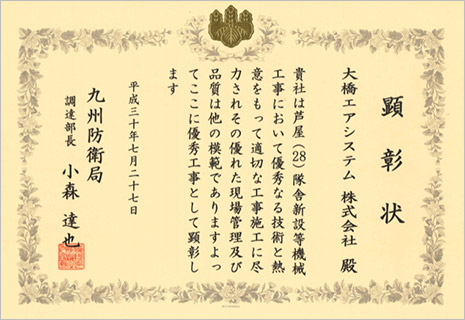 顕彰状
大橋エアシステム 株式会社 殿
貴社は芦屋(28)隊舎新設等機械
工事において優秀なる技術と熱
意をもって適切な工事施工に尽
力されその優れた現場管理及び
品質は他の模範でありますよっ
てここに優秀工事として顕彰し
ます
平成三十年七月二十七日
九州防衛局
調達部長 小森 達也